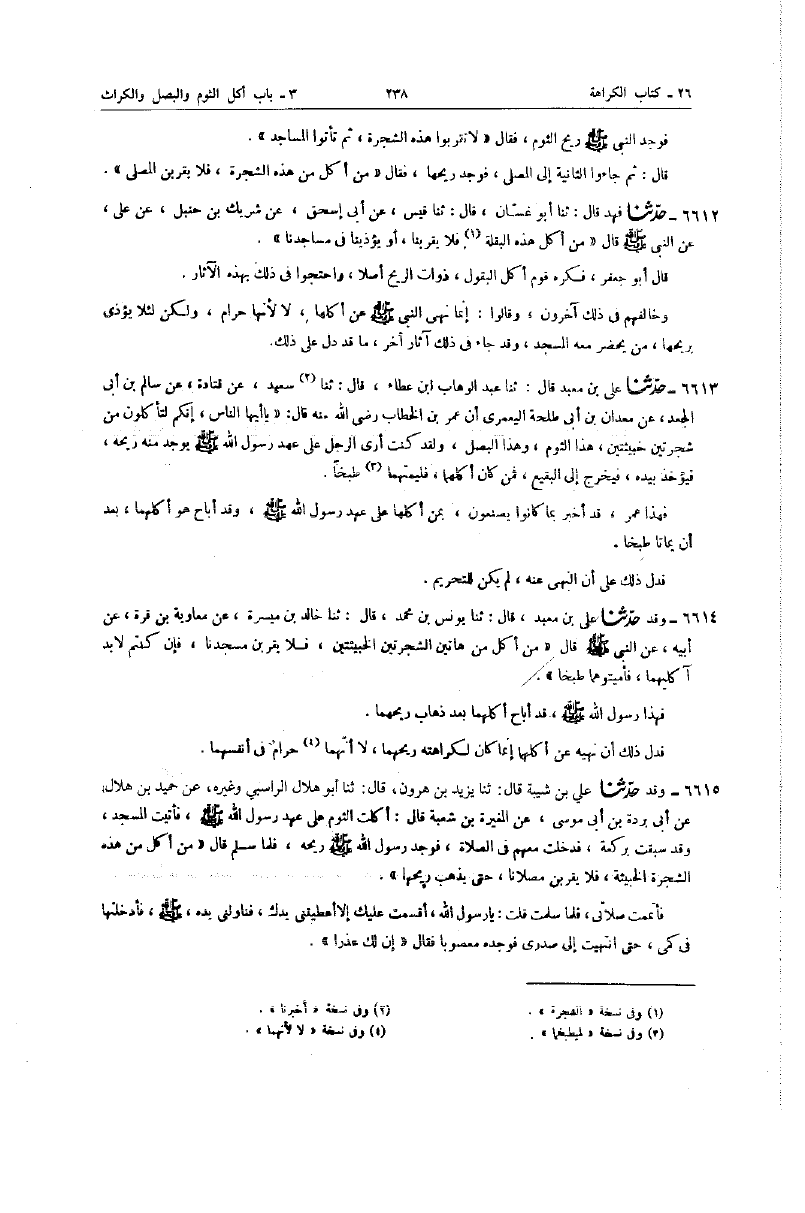 ٢٦ ـ كتاب الكراهة ٢٣٨ ٣ ـ باب أكل الثوم والبصل والكراث
فوجد النبي ﷺ ريح الثوم ، فقال « لا تقربوا هذه الشجرة ، ثم تأتوا المساجد » .
قال : ثم جاءوا الثانية إلى المصلى ، فوجد ريحها ، فقال « من أكل من هذه الشجرة ، فلا يقربن المصلى » .
٦٦١٢ ـ حدّثنا فهد قال : ثنا أبو غسّان ، قال : ثنا قيس ، عن أبى إسحق ، عن شريك بن حنبل ، عن على ،
عن النبي ﷺ قال « من أكل هذه البقلة (١) فلا يقربنا ، أو يؤذينا فى مساجدنا » .
قال أبو جعفر ، فكره قوم أكل البقول ، ذوات الريح أصلا ، واحتجوا فى ذلك بهذه الآثار .
وخالفهم فى ذلك آخرون ، وقالوا : إنما نهى النبي ﷺ عن أكلها ، لا لأنها حرام ، ولكن لئلا يؤذى
بريحها ، من يحضر معه المسجد ، وقد جاء فى ذلك آثار أخر ، ما قد دل على ذلك.
٦٦١٣ ـ حدّثنا على بن معبد قال : ثنا عبد الوهاب ابن عطاء ، قال : ثنا (٢) سعيد ، عن قتادة ، عن سالم بن أبى
الجعد ، عن معدان بن أبى طلحة اليعمرى أن عمر بن الخطاب رضى الله عنه قال: « ياأيها الناس ، إنكم لتأكلون من
شجرتين خبيثتين ، هذا الثوم ، وهذا البصل ، ولقد كنت أرى الرجل على عهد رسول الله ﷺ يوجد منه ريحه ،
فيؤخذ بيده ، فيخرج إلى البقيع ، فمن كان أكلهما ، فليمتهما (٣) طبخاً .
فهذا عمر ، قد أخبر بما كانوا يصنعون ، بمن أكلها على عهد رسول الله ﷺ ، وقد أباح هو أكلهما ، بعد
أن يماتا طبخا .
فدل ذلك على أن النهى عنه ، لم يكن للتحريم .
٦٦١٤ ـ وقد حدّثنا على بن معبد ، قال : ثنا يونس بن محمد ، قال : ثنا خالد بن ميسرة ، عن معاوية بن قرة ، عن
أبيه ، عن النبى ﷺ قال « من أكل من هاتين الشجرتين الخبيثتين ، فلا يقربن مسجدنا ، فإن كنتم لابد
آكليهما ، فأميتوهما طبخا » .
فهذا رسول الله ﷺ ، قد أباح أكلهما بعد ذهاب ريحهما .
فدل ذلك أن نهيه عن أكلها إنما كان لكراهته ريحهما ، لا أنهما (٤) حرام فى أنفسهما .
٦٦١٥ ـ وقد حدّثنا علي بن شيبة قال: ثنا يزيد بن هرون، قال: ثنا أبو هلال الراسبي وغيره، عن حميد بن هلال،
عن أبى بردة بن أبى موسى ، عن المغيرة بن شعبة قال : أكلت الثوم على عهد رسول الله ﷺ ، فأتيت المسجد ،
وقد سبقت بركعة ، فدخلت معهم فى الصلاة ، فوجد رسول الله ﷺ ريحه ، فلما سلم قال « من أكل من هذه
الشجرة الخبيثة ، فلا يقربن مصلانا ، حتى يذهب ريحها » .
فأتممت صلاتى ، فلما سلمت قلت : يا رسول الله ، أقسمت عليك إلا أعطيتنى يدك ، فناولنى يده ، ﷺ ، فأدخلتها
فى كمى ، حتى انتهيت إلى صدرى فوجده معصوبا فقال « إن لك عذرا » .
(١) وفى نسخة « الشجرة » . (٢) وفى نسخة « أخبرنا » .
(٣) وفى نسخة « ليطبخهما » . (٤) وفى نسخة « لا لأنهما » .